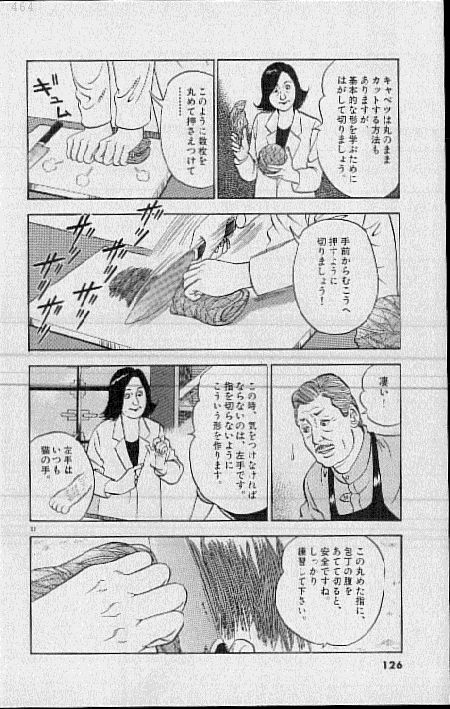 464
キャベツは丸のまま
カットする方法も
ありますが、
基本的な形を学ぶために
はがして切りましょう。
このように数枚を
丸めて押さえつけて
…………
ギュム
手前からむこうへ
押すように
切りましょう!
ザッ
ザッ
ザッ
ザッ
ザッ
凄い!
この時、気をつけなければ
ならないのは、左手です。
指を切らないように
こういう形を作ります。
左手は
いつも
猫の手。
11
この丸めた指に、
包丁の腹を
あてて切ると、
安全ですね。
しっかり
練習して下さい。
126